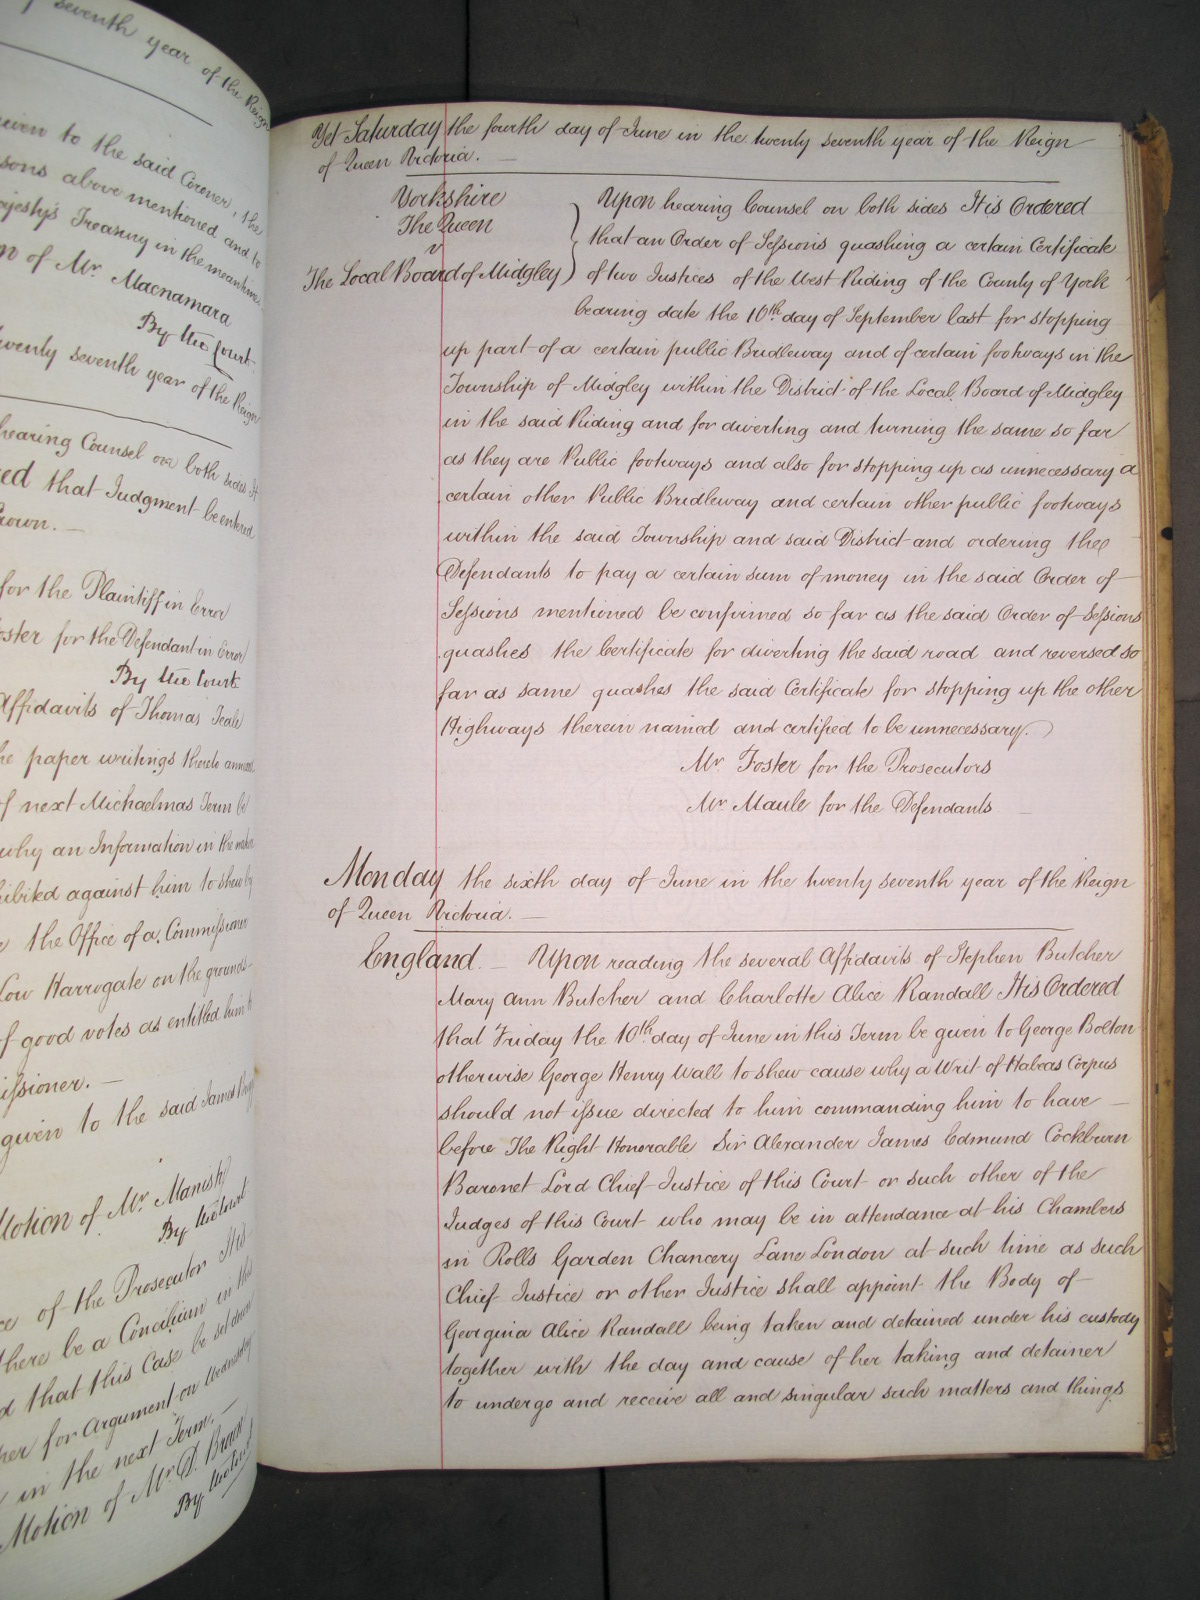 seventh year of the Reign
given to the said Coroner, the
above mentioned and to
Treasury in the meantime
of Mr. Macnamara
By the Court
twenty seventh year of the Reign
hearing Counsel on both sides It
that Judgment be entered
Crown.
for the Plaintiff in Error
Foster for the Defendant in Error
By the Court
Affidavits of Thomas Teale
the paper writings thereto annexed
of next Michaelmas Term be
why an Information in the
against him to shew
the Office of a Commissioner
Low Harrogate on the grounds
of good votes as entitled him to
Commissioner.
given to the said James
Motion of Mr. Manisty
By the Court
of the Prosecutor It is
there be a Concilium in this
that this Case be set down
for Argument on Wednesday
in the next Term.
Motion of Mr. D. Brown
By the Court
Yet Saturday the fourth day of June in the twenty seventh year of the Reign
of Queen Victoria.
Yorkshire
The Queen
v
The Local Board of Midgley
Upon hearing Counsel on both sides It is Ordered
that an Order of Sessions quashing a certain Certificate
of two Justices of the West Riding of the County of York
bearing date the 10th day of September last for stopping
up part of a certain public Bridleway and of certain footways in the
Township of Midgley within the District of the Local Board of Midgley
in the said Riding and for diverting and turning the same so far
as they are Public footways and also for stopping up as unnecessary a
certain other Public Bridleway and certain other public footways
within the said Township and said District and ordering the
Defendants to pay a certain sum of money in the said Order of
Sessions mentioned be confirmed so far as the said Order of Sessions
quashes the Certificate for diverting the said road and reversed so
far as same quashes the said Certificate for stopping up the other
Highways therein named and certified to be unnecessary.
Mr. Foster for the Prosecutors
Mr. Maule for the Defendants
Monday the sixth day of June in the twenty seventh year of the Reign
of Queen Victoria.
England. Upon reading the several Affidavits of Stephen Butcher
Mary Ann Butcher and Charlotte Alice Randall It is Ordered
that Friday the 10th day of June in this Term be given to George Bolton
otherwise George Henry Wall to shew cause why a Writ of Habeas Corpus
should not issue directed to him commanding him to have
before The Right Honorable Sir Alexander James Edmund Cockburn
Baronet Lord Chief Justice of this Court or such other of the
Judges of this Court who may be in attendance at his Chambers
in Rolls Garden Chancery Lane London at such time as such
Chief Justice or other Justice shall appoint the Body of
Georgina Alice Randall being taken and detained under his custody
together with the day and cause of her taking and detainer
to undergo and receive all and singular such matters and things